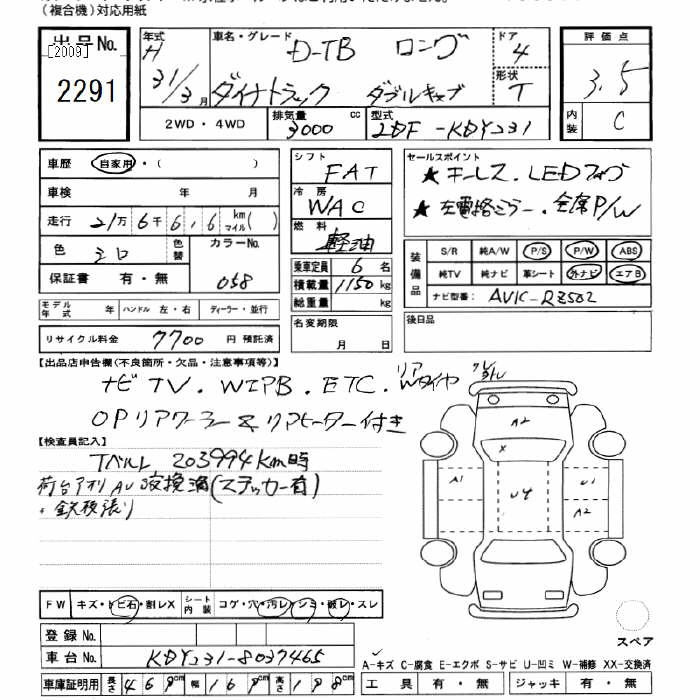 (複合機)対応用紙
出品No.
[2009]
2291
年式 H 31/3月
車名・グレード D-TB ロング
ダイナトラック ダブルキャブ
ドア 4
形状 T
評価点
3.5
内装 C
2WD・4WD
排気量 3000 cc
型式 2DF-KDY231
車歴 自家用・( )
車検 年 月
走行 21万6千6,6 km マイル( )
色 シロ 色替 カラーNo. 058
保証書 有・無
モデル年式 年 ハンドル 左・右 ディーラー・並行
リサイクル料金 7700 円 預託済
シフト FAT
冷房 WAC
燃料 軽油
乗車定員 6 名
積載量 1150 kg
総重量 kg
名変期限
月 日
セールスポイント
★キーレス.LEDフォグ
★左電格ミラー.全席P/W
装備品
S/R 純A/W P/S P/W ABS
純TV 純ナビ 革シート 外ナビ エアB
ナビ型番: AVIC-RZ502
後日品
【出品店申告欄(不良箇所・欠品・注意事項等)】
ナビTV.WIPB.ETC.リアWタイヤ
OPリアクーラー&リアヒーター付き
【検査員記入】
Tベルト 203994km時
荷台アオリAU交換済(ステッカー有)
+鉄板張り
A2
X
A1
U4
U1
A2
FW キズ・トビ石・割レX シート内装 コゲ・穴・汚レ・シミ・破レ・スレ
登録No.
車台No. KDY231-8037465
車庫証明用 長さ 469cm 幅 169cm 高さ 198cm
スペア
A-キズ C-腐食 E-エクボ S-サビ U-凹ミ W-補修 XX-交換済
工具 有・無 ジャッキ 有・無